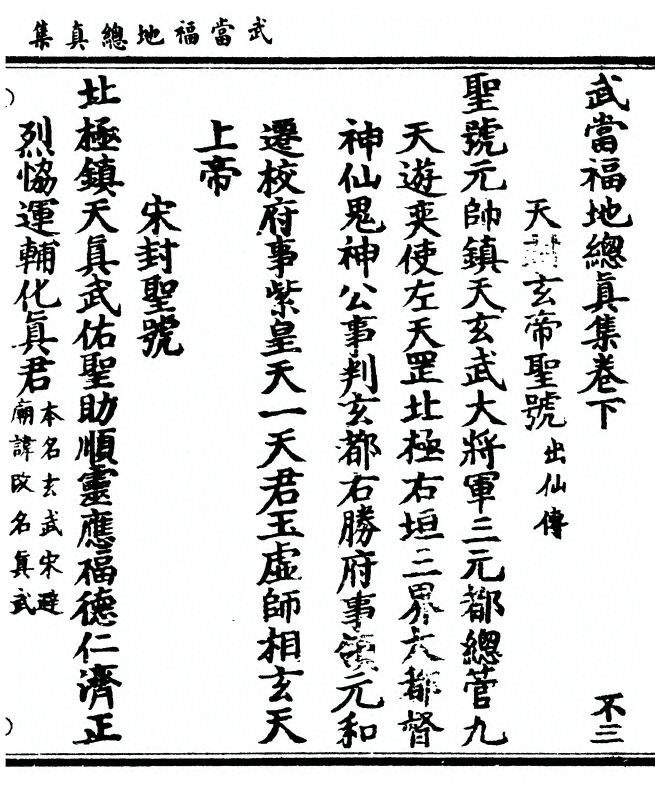 武當福地總真集
武當福地總眞集卷下 不三
天玄帝聖號 出仙傳
聖號元帥鎮天玄武大將軍三元都總管九
天遊奕使左天罡北極右垣三界大都督
神仙鬼神公事判玄都右勝府事領元和
遷校府事紫皇天一天君玉虛師相玄天
上帝
宋封聖號
北極鎮天眞武佑聖助順靈應福德仁濟正
烈恊運輔化眞君 本名玄武宋避
廟諱改名眞武